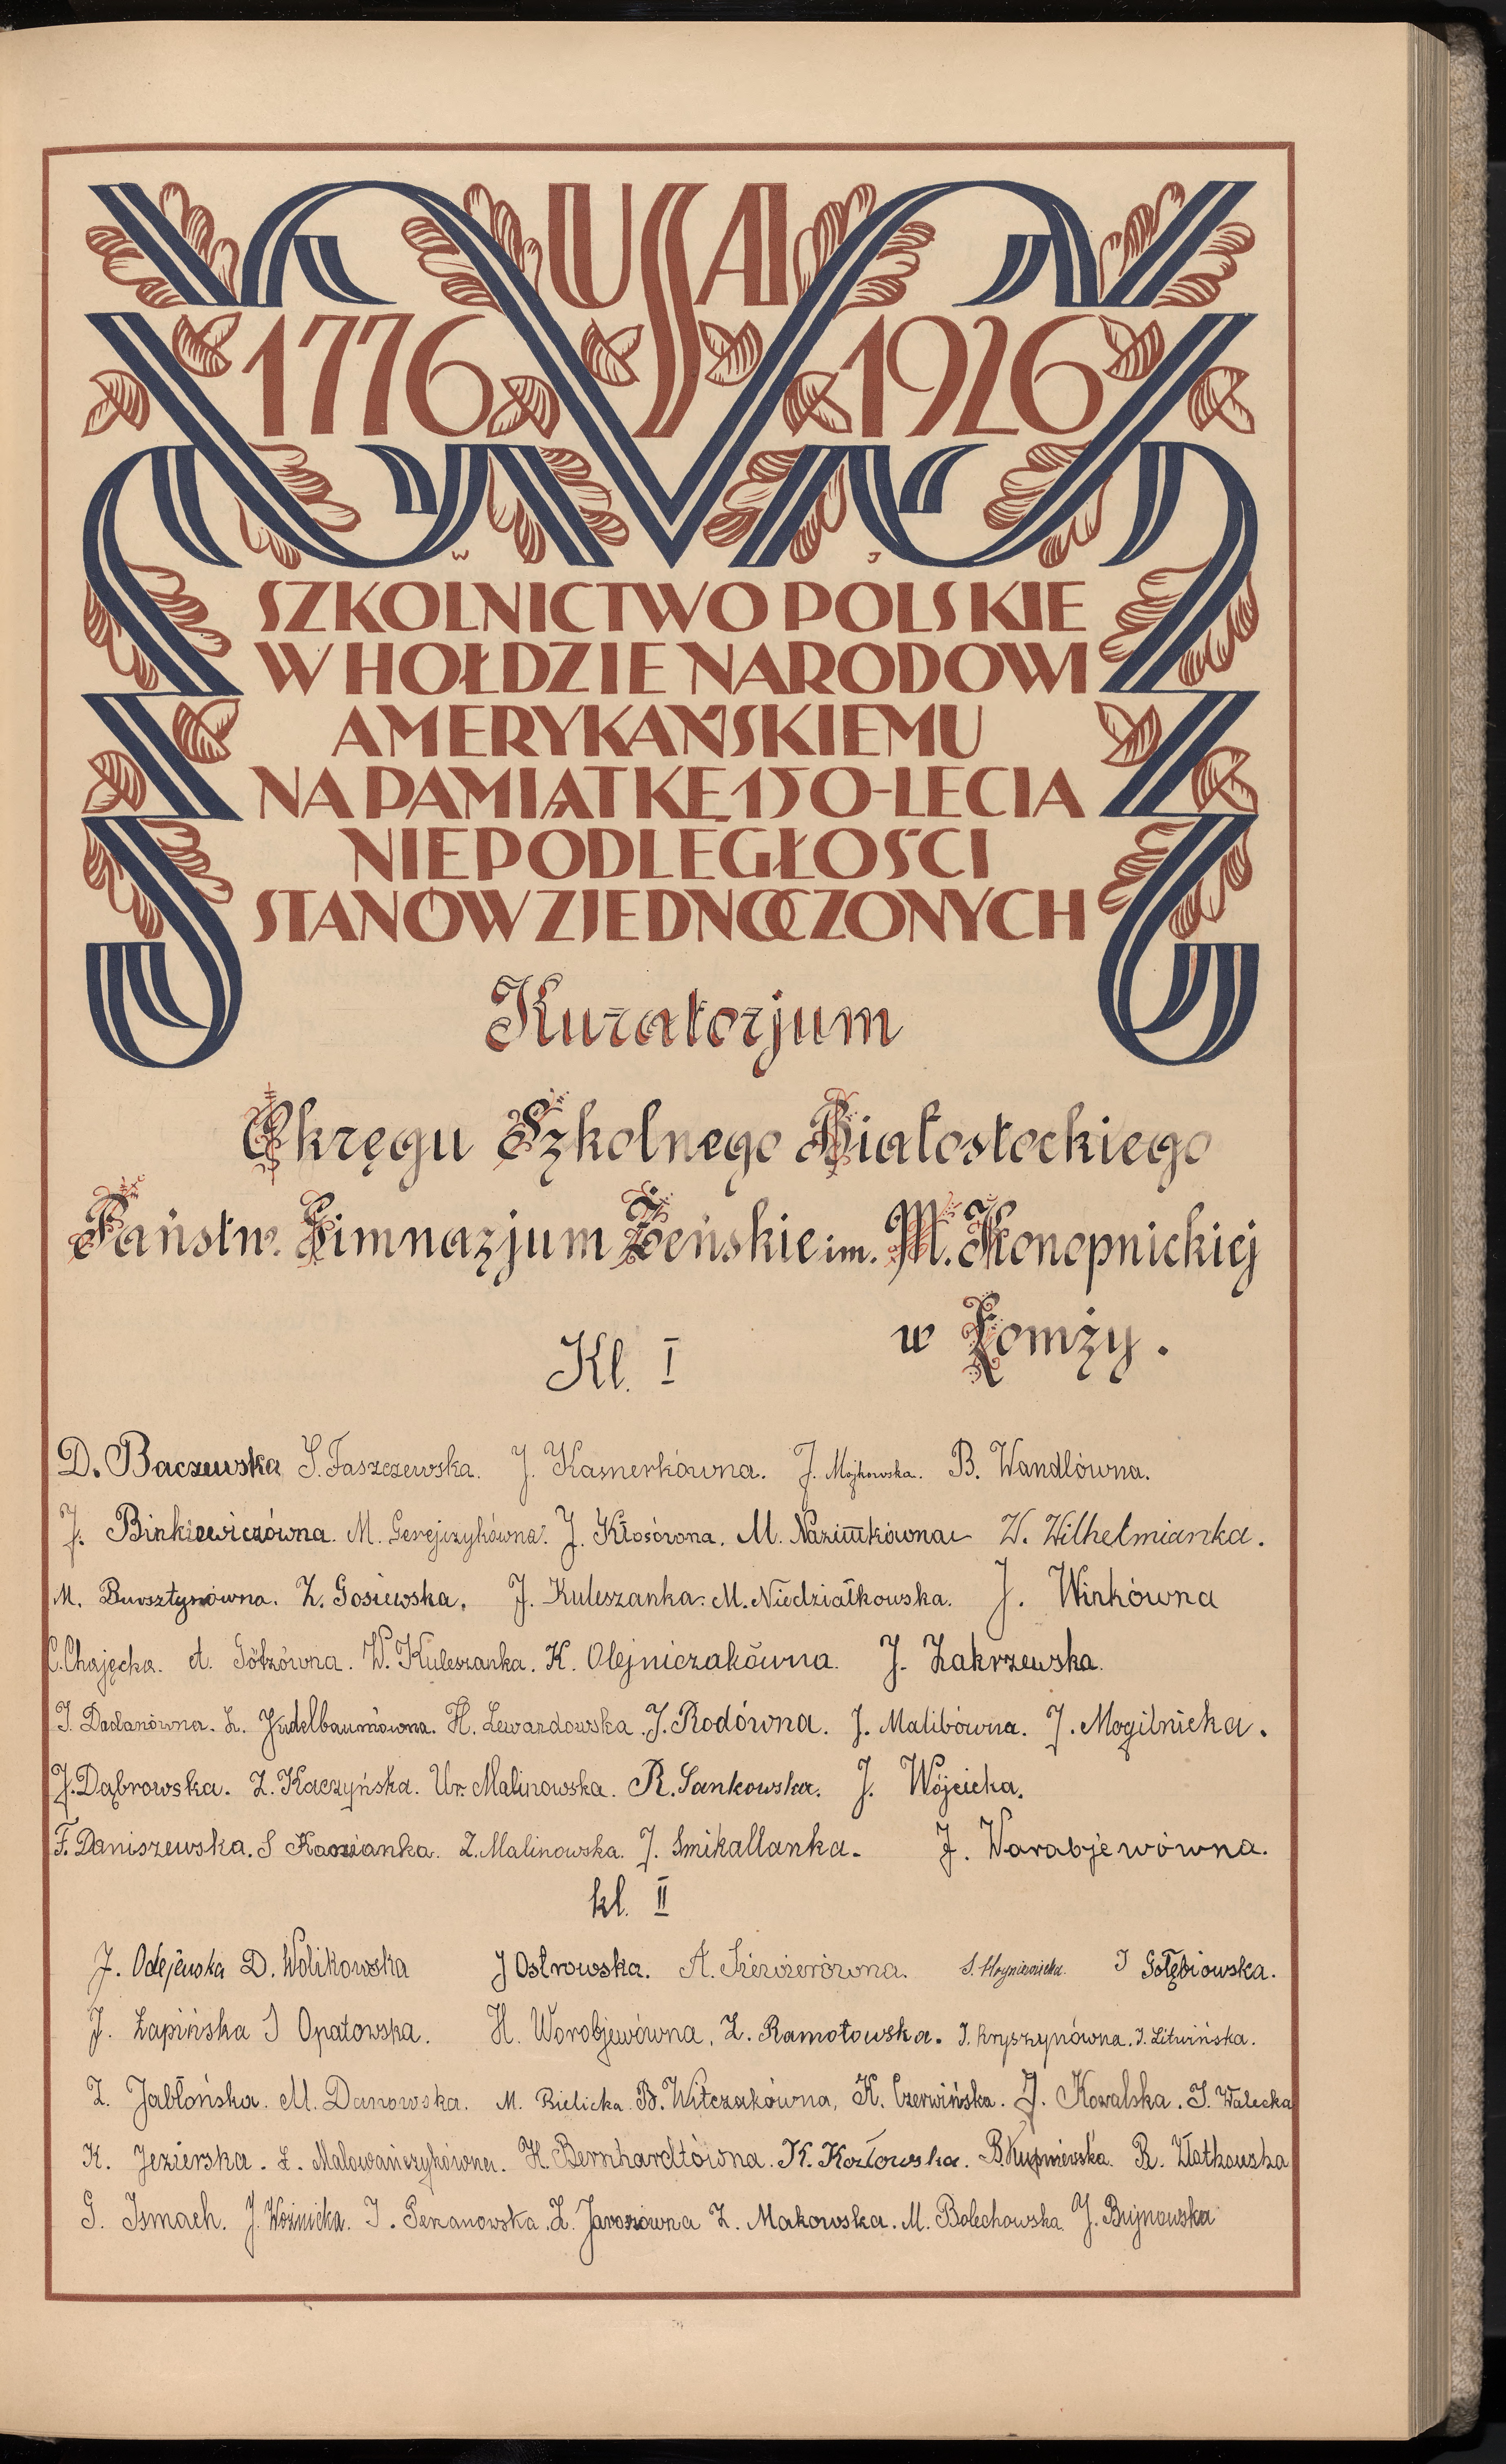 USA
1776 1926
W J
SZKOLNICTWO POLSKIE
W HOŁDZIE NARODOWI
AMERYKAŃSKIEMU
NA PAMIĄTKĘ 150-LECIA
NIEPODLEGŁOŚCI
STANÓW ZJEDNOCZONYCH
Kuratorjum
Okręgu Szkolnego Białostockiego
Państw. Gimnazjum Żeńskie im. M. Konopnickiej
w Łomży.
Kl. I
D. Baczewska S. Faszczewska. J. Kasnerkówna. J. Majkowska. B. Wandlówna.
J. Binkiewiczówna. M. Gerejczykówna. J. Kłosówna. M. W. Wilhelmianka.
M. Bursztynówna. Z. Gosiewska. J. Kuleszanka. M. Niedziałkowska. J. Winkówna
C. Chajęcka. A. Götzówna. W. Kuleszanka. K. Olejniczakówna. J. Zakrzewska.
J. Dadanówna. Z. Judelbaumówna. H. Lewandowska. J. Rodówna. J. Malibówna. J. Mogilnicka.
J. Dąbrowska. Z. Kaczyńska. Ur. Malinowska. R. Sankowska. J. Wójcicka.
F. Daniszewska. S Z. Malinowska. J. Smikallanka. J. Warabjewówna.
kl. II
J. Odejewska D. Wolikowska J Ostrowska. A. S. I Gołębiowska.
J. Łapińska I Opatowska. H. Worobjewówna. Z. Ramotowska. J. Kryszynówna. J. Litwińska.
Z. Jabłońska. M. Danowska. M. Bielicka B. Witczakówna, K. Czerwińska. J. Kowalska. J. Walecka
K. Jezierska. Z. Malowańczykówna. H. Bernhardtówna. K. Kozłowska. B. Kupniewska. R. Złotkowska
G. Ismach. J. Woźnicka. I. Z. Jaroszówna Z. Makowska. M. Bolechowska J. Bujnowska